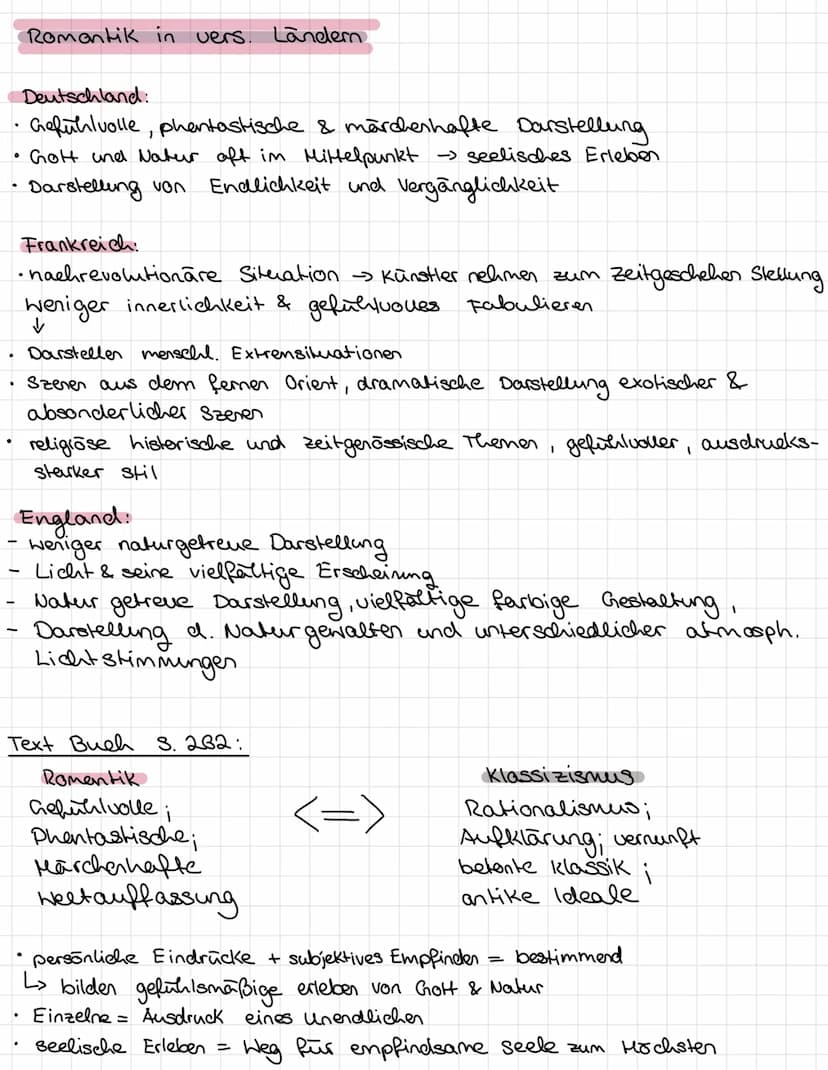 Romantik in vers. Ländern
Deutschland:
• Gefühlvolle, phantastische & märchenhafte Darstellung
• Gott und Natur oft im Mittelpunkt → seelisches Erleben
• Darstellung von Endlichkeit und Vergänglichkeit
Frankreich:
• nachrevolutionäre Situation → Künstler nehmen zum Zeitgeschehen Stellung
weniger innerlichkeit & gefühlvolles Fabulieren
↓
• Darstellen menschl. Extremsituationen
• Szenen aus dem fernen Orient, dramatische Darstellung exotischer &
absonderlicher Szenen
• religiöse historische und zeitgenössische Themen, gefühlvoller, ausdrucks-
starker Stil
England:
- weniger naturgetreue Darstellung
- Licht & seine vielfältige Erscheinung
- Natur getreue Darstellung, vielfältige farbige Gestaltung,
- Darstellung d. Naturgewalten und unterschiedlicher atmosph.
Lichtstimmungen
Text Buch S. 282:
Romantik <=> Klassizismus
Gefühlvolle; Rationalismus;
Phantastische; Aufklärung; vernunft
Märchenhafte betonte Klassik;
Weltauffassung antike Ideale
• persönliche Eindrücke + subjektives Empfinden = bestimmend
↳ bilden gefühlsmäßige erleben von Gott & Natur
• Einzelne = Ausdruck eines unendlichen
• seelische Erleben = Weg für empfindsame Seele zum Höchsten